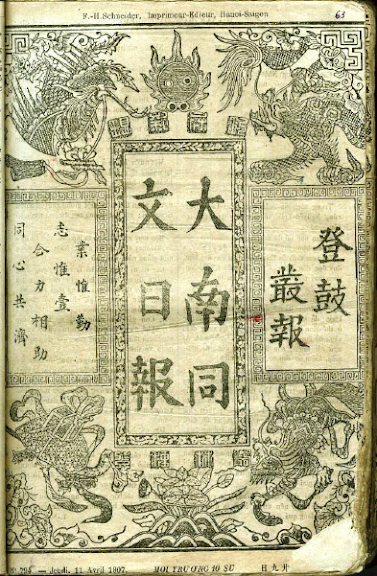 F.-H. Schneider, Imprimeur-Editeur, Hanoi-Saigon
63
登鼓
叢報
大南同
文日報
業惟勤
志惟壹
合力相助
同心共濟
794 — Jeudi, 11 Avril 1907. MỖI TRƯƠNG 10 SU 日九廿